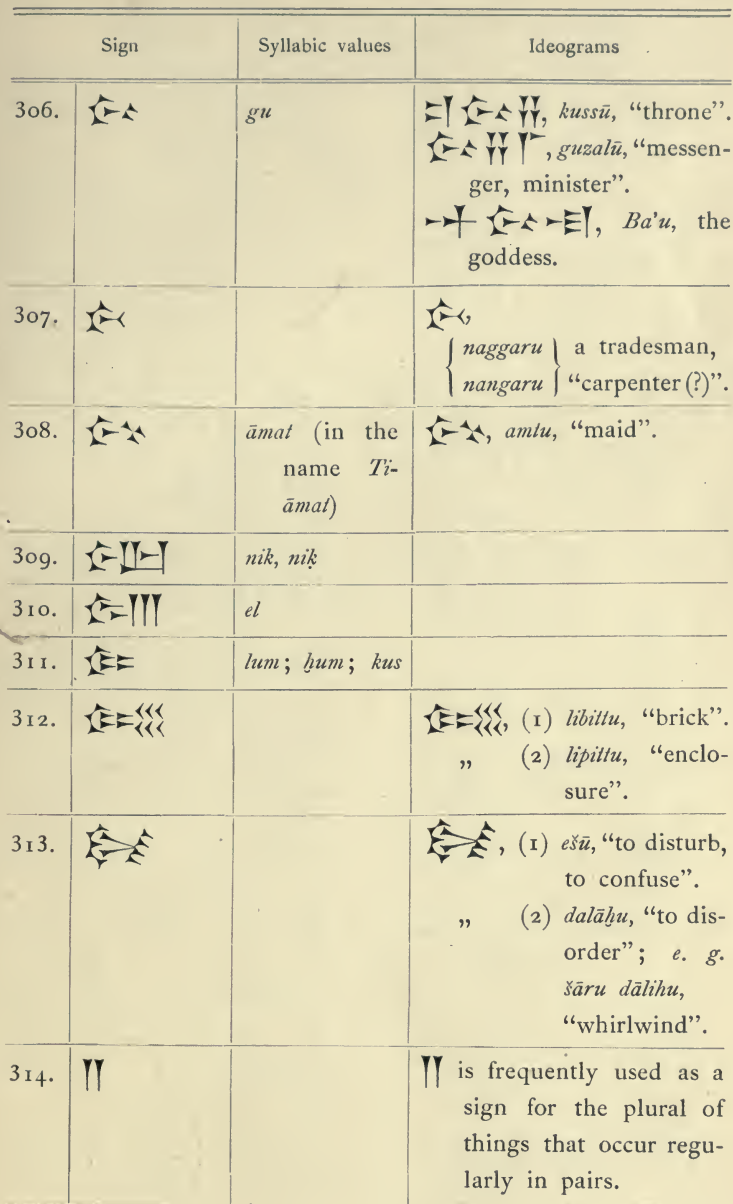 Sign Syllabic values Ideograms
306. 𒄖 gu 𒄑𒄖𒍝, kussū, “throne”.
𒄖𒍝𒇲, guzalū, “messen-
ger, minister”.
𒀭𒄖𒆷, Ba’u, the
goddess.
307. 𒉄 𒉄,
naggaru a tradesman,
nangaru “carpenter (?)”.
308. 𒊩𒆳 āmat (in the 𒊩𒆳, amtu, “maid”.
name Ti-
āmat)
309. 𒊩𒌨 nik, niḳ
310. 𒂖 el
311. 𒈝 lum; ḫum; kus
312. 𒋞 𒋞, (1) libittu, “brick”.
„ (2) lipittu, “enclo-
sure”.
313. (1) ešū, “to disturb,
to confuse”.
„ (2) dalāḫu, “to dis-
order”; e. g.
šāru dāliḫu,
“whirlwind”.
314. 𒈫 𒈫 is frequently used as a
sign for the plural of
things that occur regu-
larly in pairs.